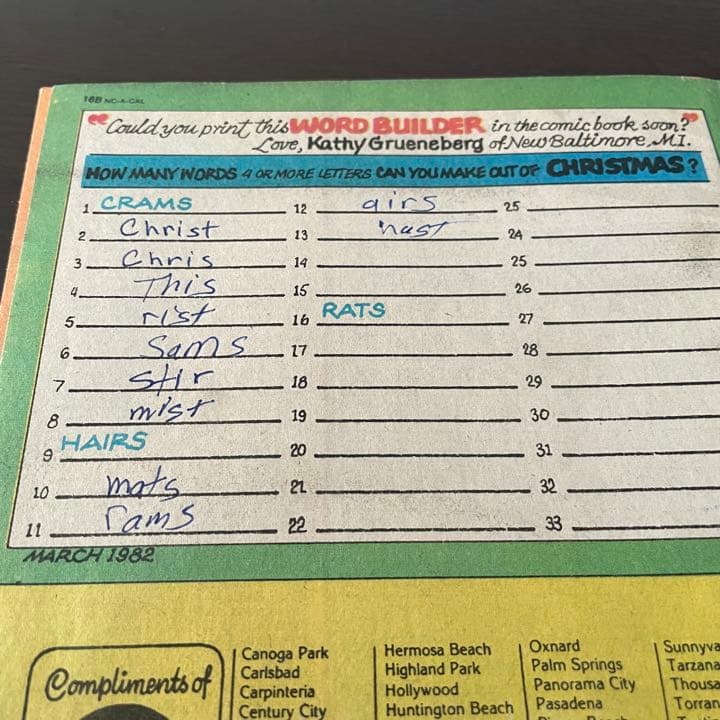 16B NC-A-CAL
"Could you print this WORD BUILDER in the comic book soon?"
Love, Kathy Grueneberg of New Baltimore, MI.
HOW MANY WORDS 4 OR MORE LETTERS CAN YOU MAKE OUT OF CHRISTMAS?
1 CRAMS
2 Christ
3 Chris
4 This
5 rist
6 Sams
7 Stir
8 mist
9 HAIRS
10 mats
11 rams
12 airs
13 hast
14
15
16 RATS
17
18
19
20
21
22
25
24
25
26
27
28
29
30
31
32
33
MARCH 1982
Compliments of
Canoga Park
Carlsbad
Carpinteria
Century City
Hermosa Beach
Highland Park
Hollywood
Huntington Beach
Oxnard
Palm Springs
Panorama City
Pasadena
Sunnyva
Tarzana
Thousa
Torran